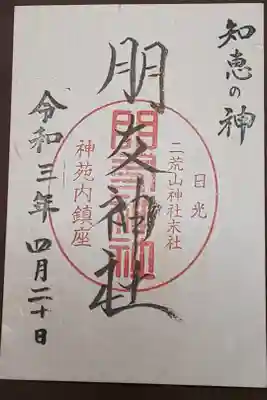 知恵の神
日光
二荒山神社末社
朋友神社
神苑内鎮座
令和三年 四月二十日